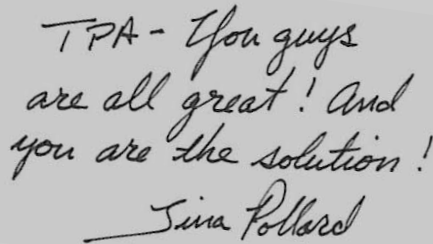 TPA - You guys
are all great! And
you are the solution!
Tina Pollard